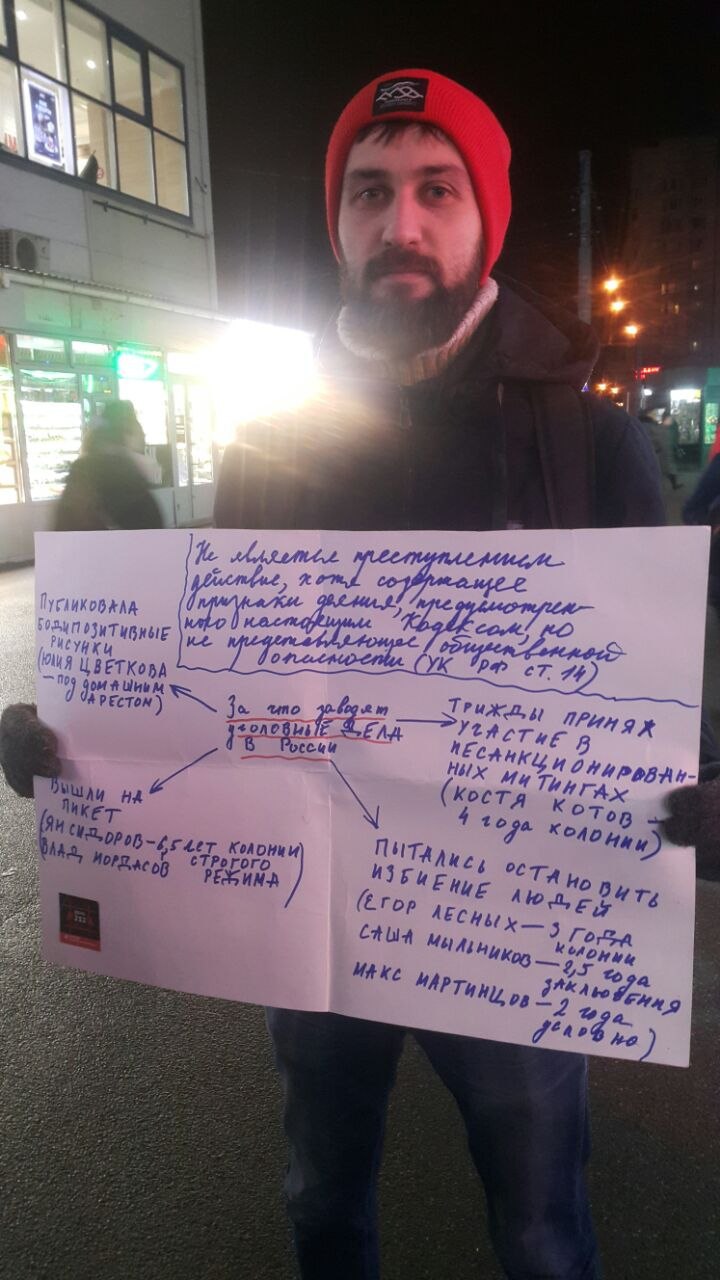 Не является преступлением
действие, хотя содержащее
признаки деяния, предусмотрен-
ного настоящим Кодексом, но
не представляющее общественной
опасности (УК РФ ст. 14)
ПУБЛИКОВАЛА
БОДИПОЗИТИВНЫЕ
РИСУНКИ
(ЮЛИЯ ЦВЕТКОВА
— ПОД ДОМАШНИМ
АРЕСТОМ)
За что заводят
УГОЛОВНЫЕ ДЕЛА
В РОССИИ
ТРИЖДЫ ПРИНЯЛ
УЧАСТИЕ В
НЕСАНКЦИОНИРОВАН-
НЫХ МИТИНГАХ
(КОСТЯ КОТОВ —
4 года КОЛОНИИ)
ВЫШЛИ НА
ПИКЕТ
(ЯН СИДОРОВ — 6,5 ЛЕТ КОЛОНИИ
ВЛАД МОРДАСОВ СТРОГОГО
РЕЖИМА)
ПЫТАЛИСЬ ОСТАНОВИТЬ
ИЗБИЕНИЕ ЛЮДЕЙ
(ЕГОР ЛЕСНЫХ — 3 ГОДА
КОЛОНИИ
САША МЫЛЬНИКОВ — 2,5 года
ЗАКЛЮЧЕНИЯ
МАКС МАРТИНЦОВ — 2 года
условно)